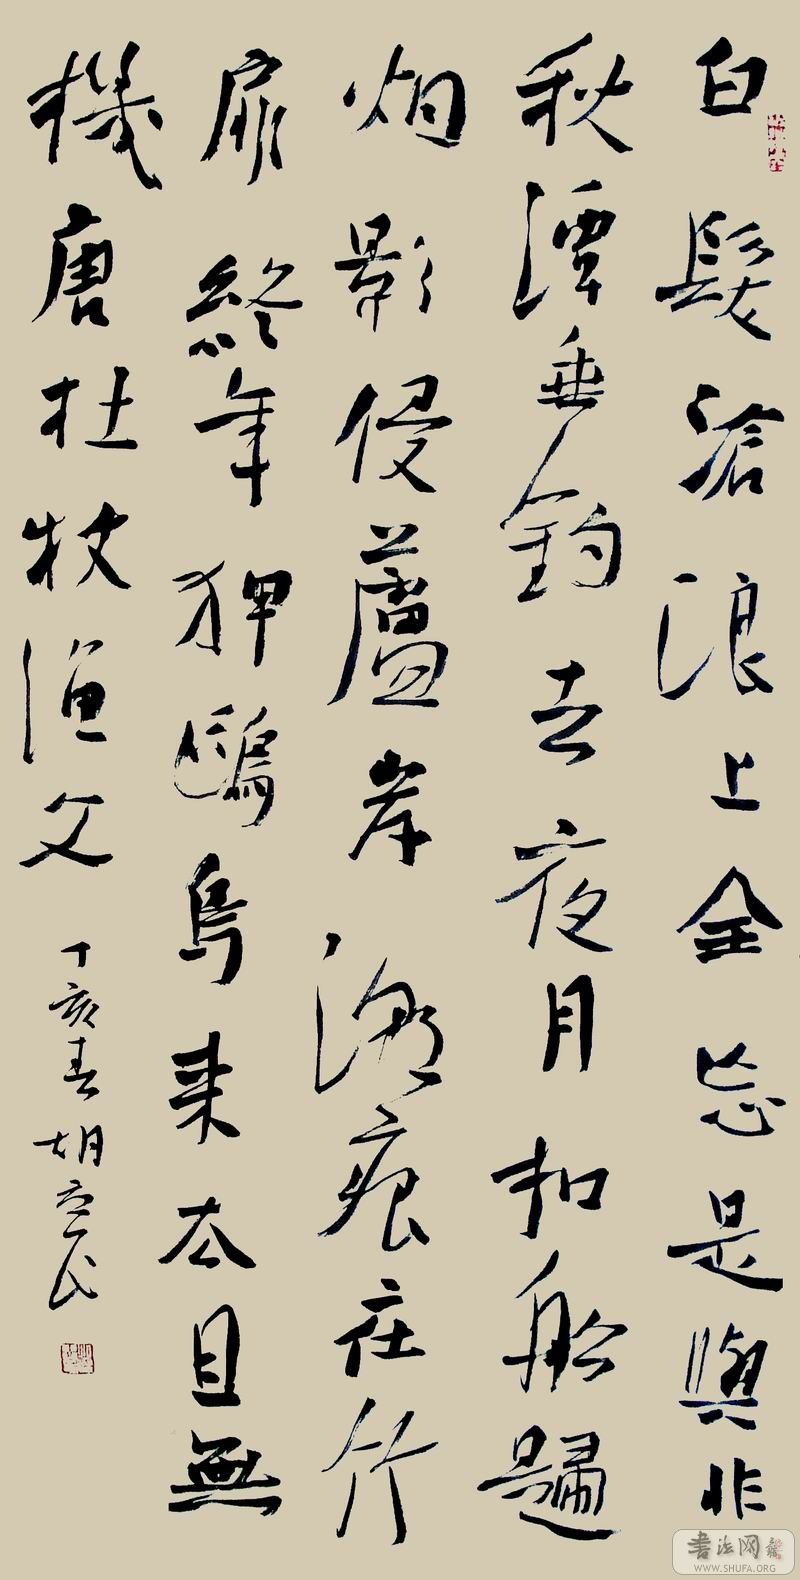 白髮滄浪上全忘是與非
秋潭垂釣去夜月扣船歸
烟影侵蘆岸潮痕在竹
扉終年狎鷗鳥来去且無
機唐杜牧漁父
丁亥春胡立民
書法网
WWW.SHUFA.ORG